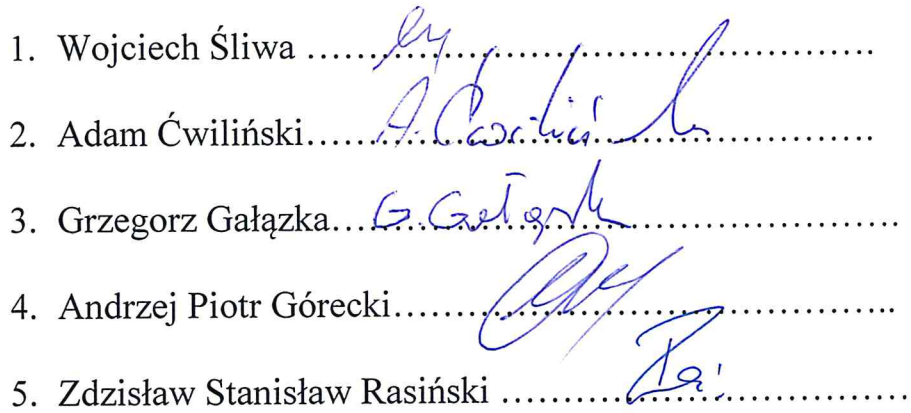 1. Wojciech Śliwa ……………………………………….
2. Adam Ćwiliński……A. Ćwiliński……………….
3. Grzegorz Gałązka…G. Gałązka………………………
4. Andrzej Piotr Górecki……………………………………..
5. Zdzisław Stanisław Rasiński ………………………………